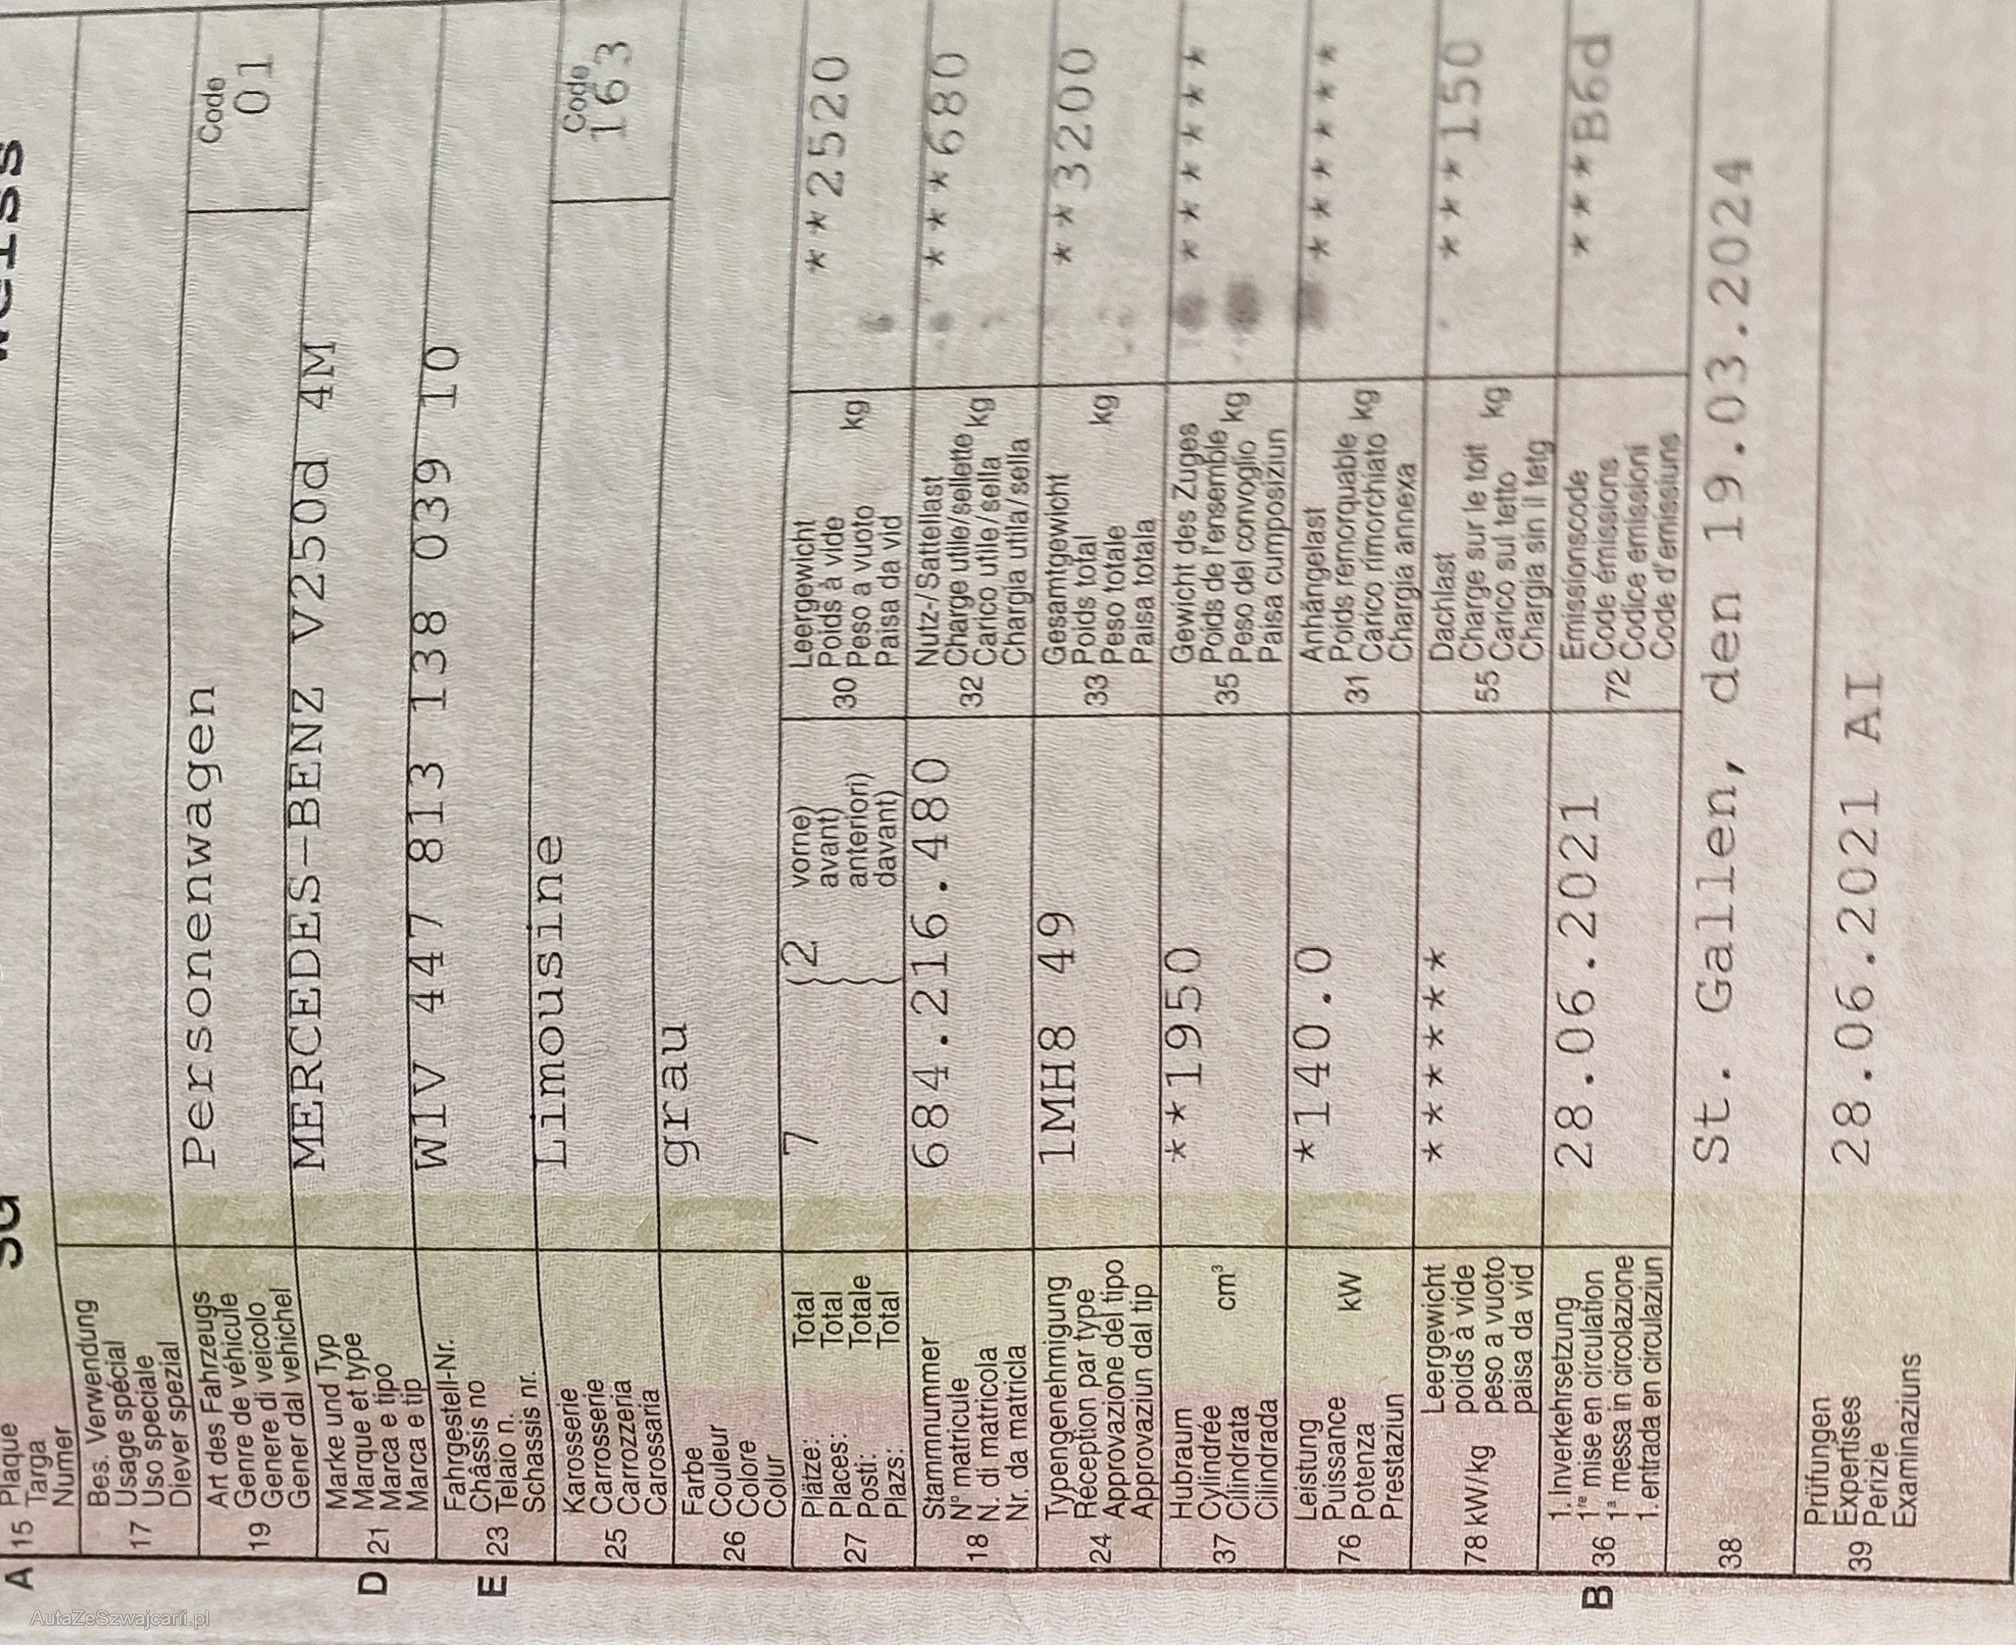 A 15 Plaque SG weiss
Targa
Numer
Bes. Verwendung
Usage spécial
17 Uso speciale
Diever spezial
Art des Fahrzeugs Personenwagen Code
Genre de véhicule 01
19 Genere di veicolo
Gener dal vehichel
Marke und Typ MERCEDES-BENZ V250d 4M
D 21 Marque et type
Marca e tipo
Marca e tip
Fahrgestell-Nr. W1V 447 813 138 039 10
Châssis no
E 23 Telaio n.
Schassis nr.
Karosserie Limousine Code
Carrosserie 163
25 Carrozzeria
Carossaria
Farbe grau
Couleur
26 Colore
Colur
Plätze: Total 7 {2 vorne) Leergewicht **2520
Places: Total avant) 30 Poids à vide
27 Posti: Totale anteriori) Peso a vuoto kg
Plazs: Total davant) Paisa da vid
Stammnummer 684.216.480 Nutz-/Sattellast ***680
N° matricule Charge utile/sellette
18 N. di matricola 32 Carico utile/sella kg
Nr. da matricla Chargia utila/sella
Typengenehmigung 1MH8 49 Gesamtgewicht **3200
Réception par type Poids total
24 Approvazione del tipo 33 Peso totale kg
Approvaziun dal tip Paisa totala
Hubraum **1950 Gewicht des Zuges *******
Cylindrée Poids de l'ensemble
37 Cilindrata cm³ 35 Peso del convoglio kg
Cilindrada Paisa cumposiziun
Leistung *140.0 Anhängelast *******
Puissance Poids remorquable
76 Potenza kW 31 Carico rimorchiato kg
Prestaziun Chargia annexa
Leergewicht ******* Dachlast ***150
78 kW/kg poids à vide Charge sur le toit
peso a vuoto 55 Carico sul tetto kg
paisa da vid Chargia sin il tetg
1. Inverkehrsetzung 28.06.2021 Emissionscode ***B6d
B 36 1re mise en circulation 72 Code émissions
1a messa in circolazione Codice emissioni
1. entrada en circulaziun Code d'emissiuns
38 St. Gallen, den 19.03.2024
Prüfungen 28.06.2021 AI
39 Expertises
Perizie
Examinaziuns
AutaZeSzwajcarii.pl